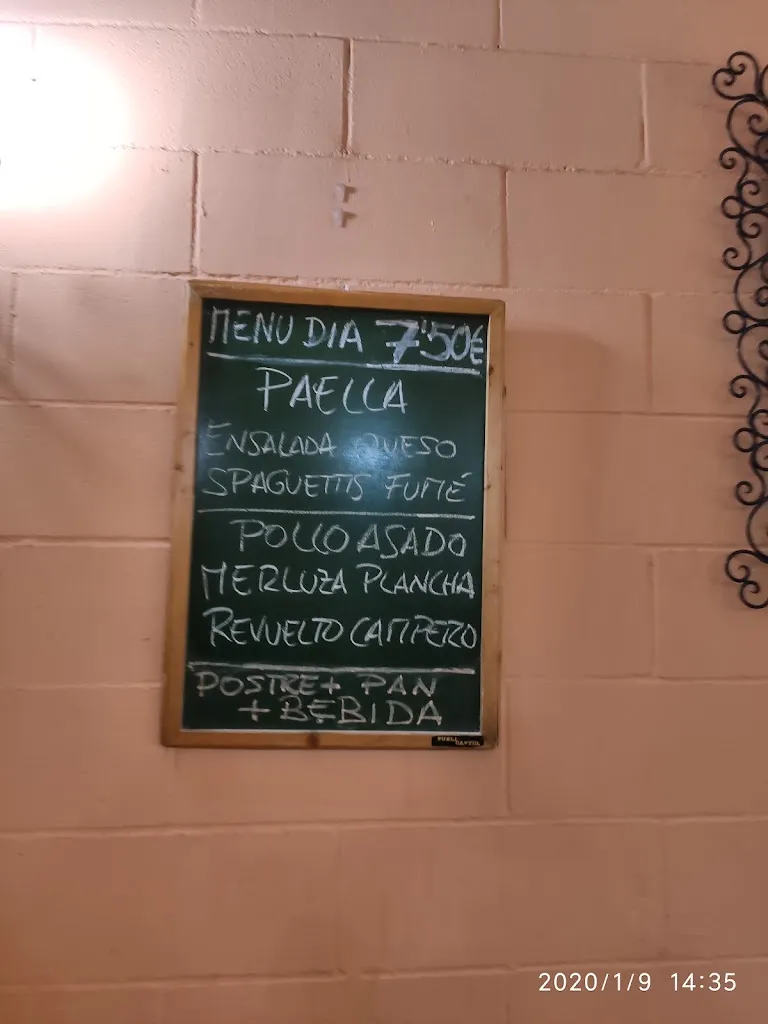 MENU DIA 7'50€
PAELLA
ENSALADA QUESO
SPAGUETTIS FUMÉ
POLLO ASADO
MERLUZA PLANCHA
REVUELTO CAMPERO
POSTRE + PAN
+ BEBIDA
2020/1/9 14:35